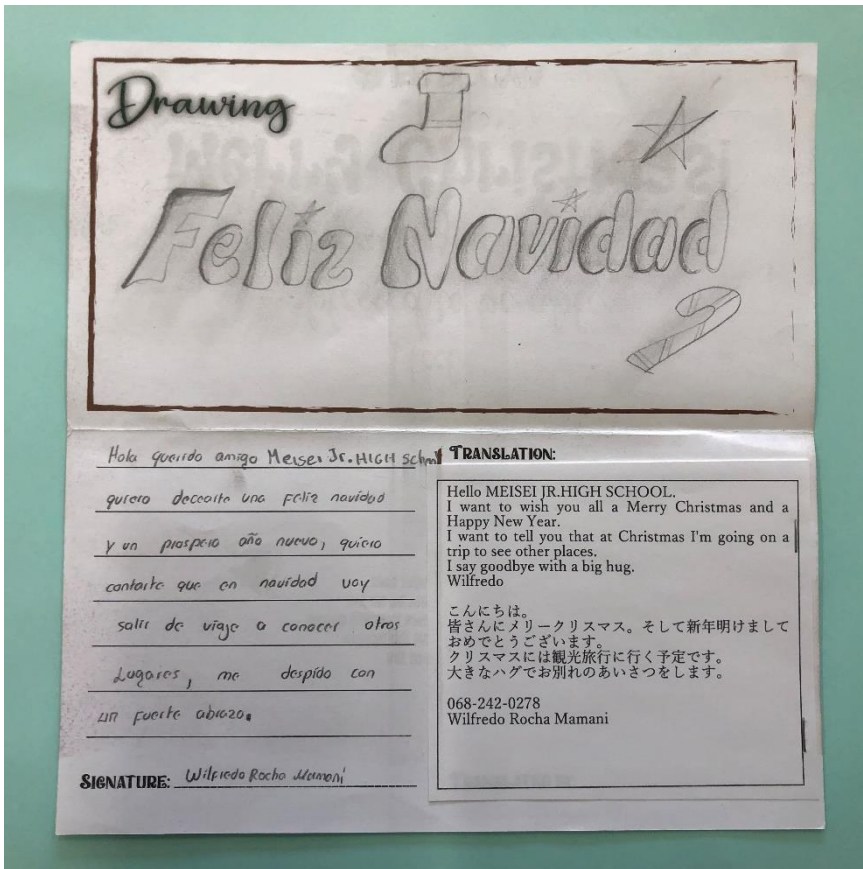 Drawing
Feliz Navidad
Hola querido amigo Meisei Jr.HIGH School
quiero decearte una Feliz navidad
y un prospero año nuevo, quiero
contarte que en navidad voy
salir de viaje a conocer otros
Lugares, me despido con
un fuerte abrazo.
SIGNATURE: Wilfredo Rocha Mamani
TRANSLATION:
Hello MEISEI JR.HIGH SCHOOL.
I want to wish you all a Merry Christmas and a
Happy New Year.
I want to tell you that at Christmas I'm going on a
trip to see other places.
I say goodbye with a big hug.
Wilfredo
こんにちは。
皆さんにメリークリスマス。そして新年明けまして
おめでとうございます。
クリスマスには観光旅行に行く予定です。
大きなハグでお別れのあいさつをします。
068-242-0278
Wilfredo Rocha Mamani